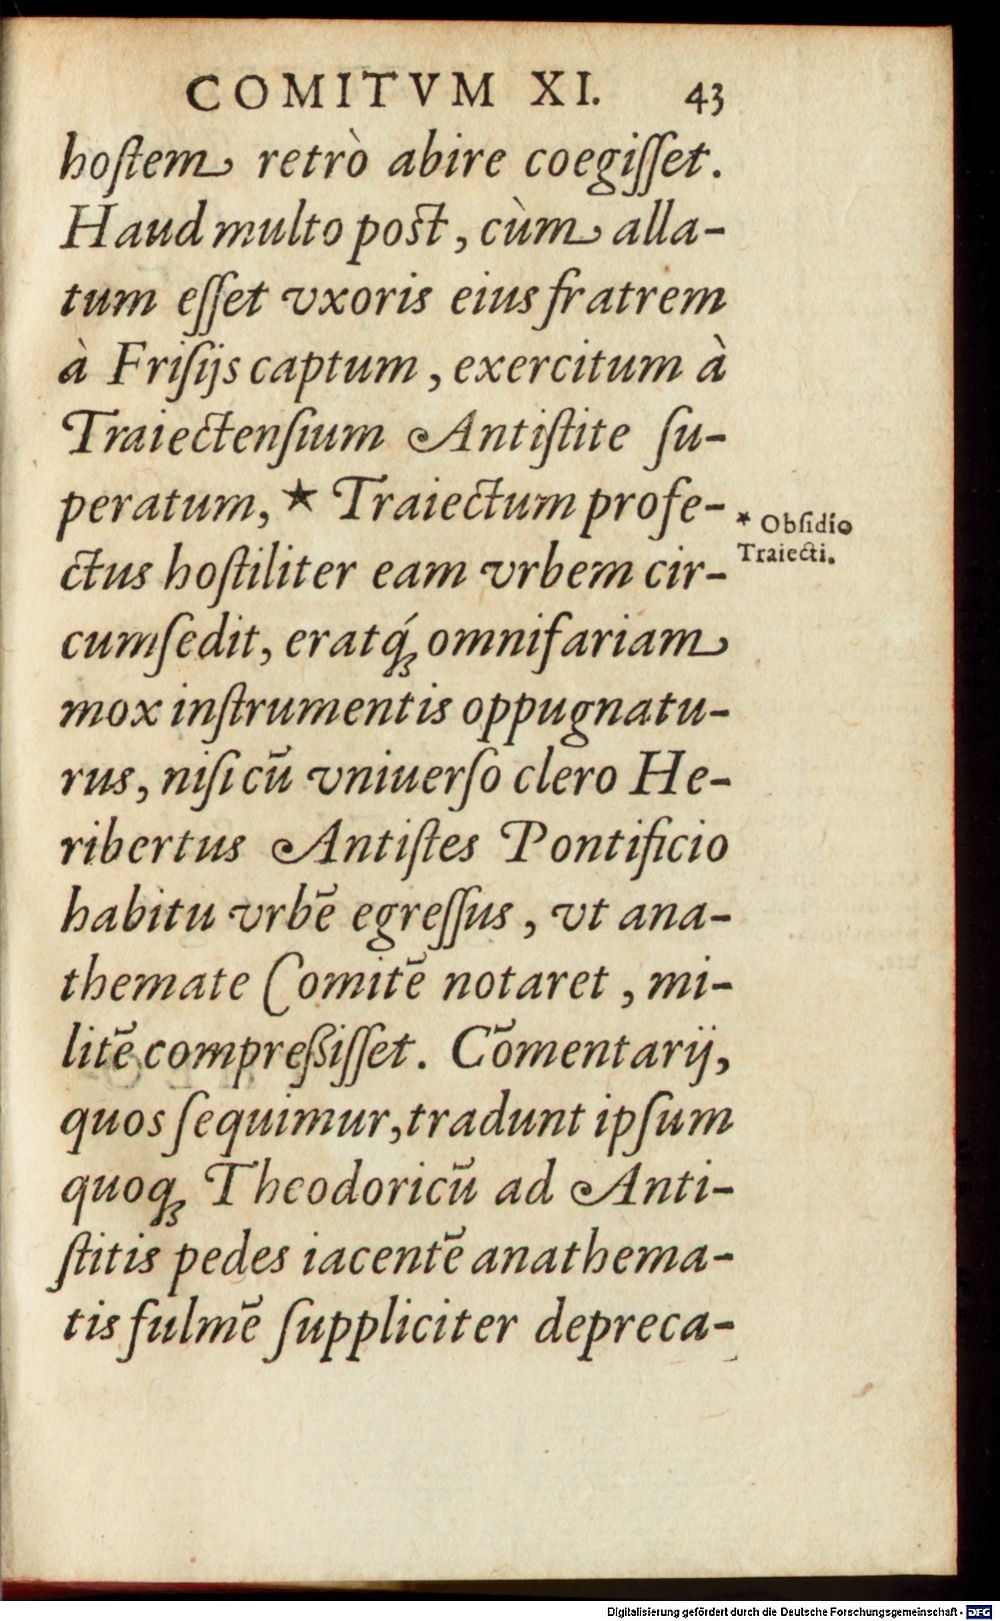 COMITVM XI. 43
hoſtem retrò abire coegiſſet.
Haud multo post, cùm alla-
tum eſſet vxoris eius fratrem
à Friſijs captum, exercitum à
Traiectenſium Antiſtite ſu-
peratum, * Traiectum profe-
ctus hoſtiliter eam vrbem cir-
cumſedit, eratq́ꝫ omnifariam
mox inſtrumentis oppugnatu-
rus, niſi cū vniuerſo clero He-
ribertus Antiſtes Pontificio
habitu vrbē egreſſus, vt ana-
themate Comitē notaret, mi-
litē compreßiſſet. Cōmentarij,
quos ſequimur, tradunt ipſum
quoqꝫ Theodoricū ad Anti-
ſtitis pedes iacentē anathema-
tis fulmē ſuppliciter depreca-
* Obſidio
Traiecti.
Digitalisierung gefördert durch die Deutsche Forschungsgemeinschaft - DFG